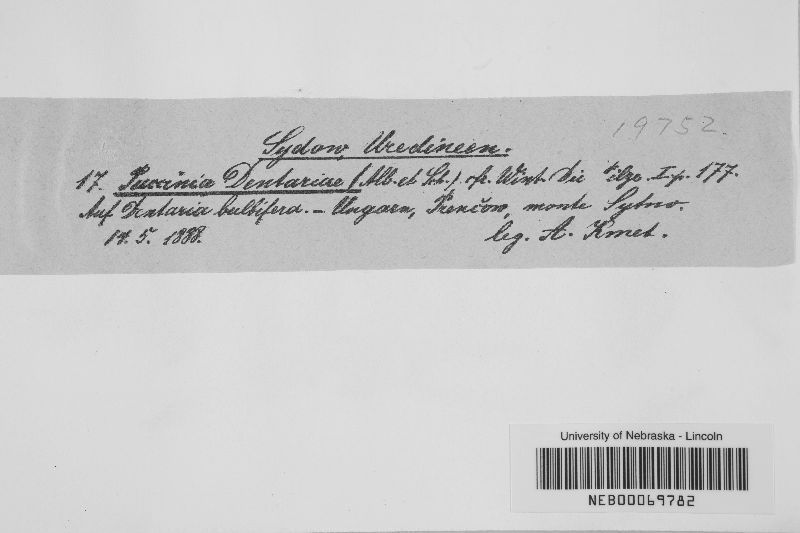 19752.
Sydow, Uredineen.
17. Puccinia Dentariae (Alb. et Sch.) cfr. Wint. Die Pilze. I. p. 177.
Auf Dentaria bulbifera. – Ungarn, Prenčow, monte Sytno.
14. 5. 1888. leg. A. Kmet.
University of Nebraska - Lincoln
NEB00069782